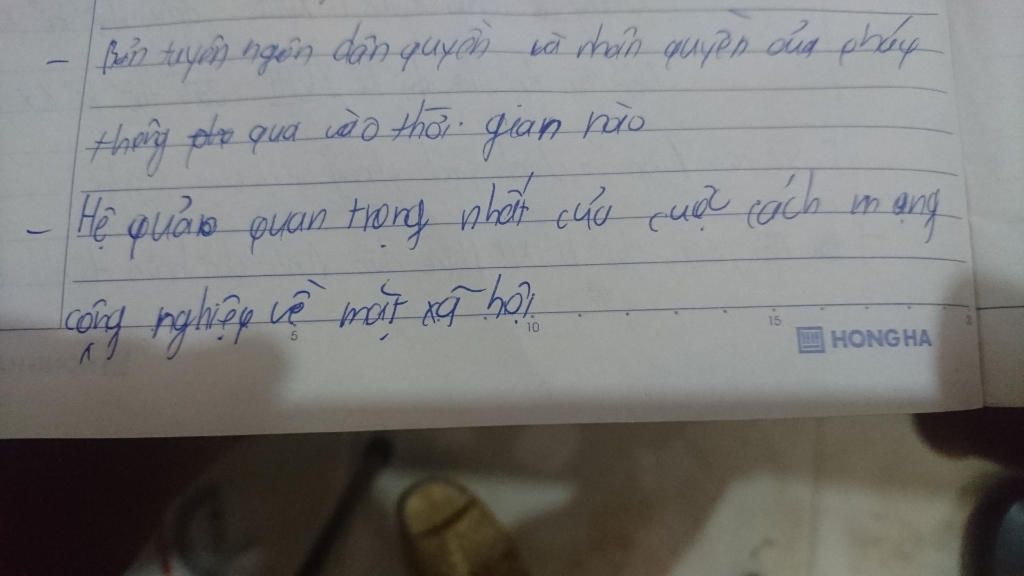 - Bản tuyên ngôn dân quyền và nhân quyền của pháp
thông qua vào thời gian nào
- Hệ quả quan trọng nhất của cuộc cách mạng
công nghiệp về mặt xã hội
5 10 15
HONG HA